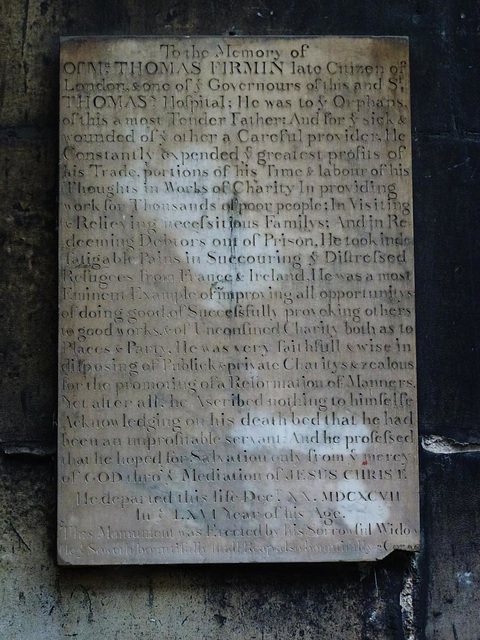 To the Memory of
Of Mr. THOMAS FIRMIN late Citizen of
London, & one of ye Governours of this and St.
THOMAS's Hospital; He was to ye Orphans,
of this a most Tender Father: And for ye sick &
wounded of ye other a Careful provider. He
Constantly expended ye greatest profits of
his Trade, portions of his Time & labour of his
Thoughts in Works of Charity In providing
work for Thousands of poor people; In Visiting
& Relieving necessitious Familys; And in Re-
deeming Debtors out of Prison. He took inde
fatigable Pains in Succouring ye Distressed
Refugees from France & Ireland. He was a most
Eminent Example of improving all opportunitys
of doing good of Successfully provoking others
to good works, & of Unconfined Charity both as to
Places & Party. He was very faithfull & wise in
disposing of Publick & private Charitys & zealous
for the promoting of a Reformation of Manners.
Yet after all, he Ascribed nothing to himselfe
Acknowledging on his death bed that he had
been an unprofitable servant: And he professed
that he hoped for Salvation only from ye mercy
of GOD thro' ye Mediation of JESUS CHRIST.
He departed this life Dec: XX. MDCXCVII
In ye LXVI Year of his Age.
This Monument was Erected by his Sorrowful Widow